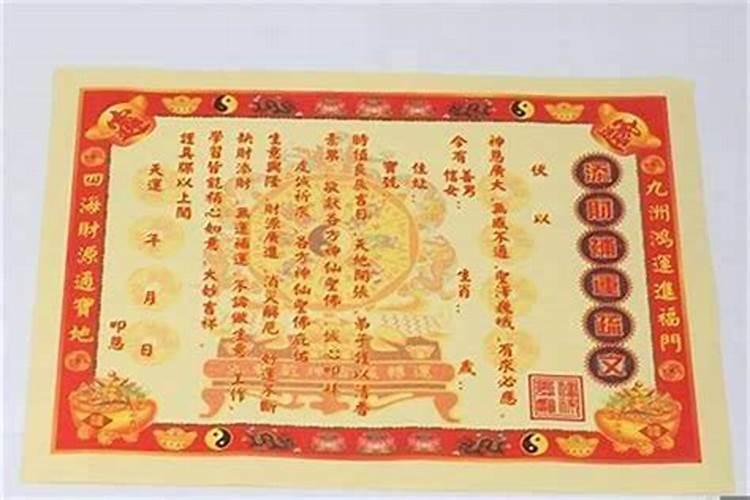 九洲鴻運進福門
添財補運疏文
伏以
神恩廣大 無感不通 聖澤巍峨 有求必應
今有 善男
信女 生肖 歲
住址
寶號
時值良辰吉日 天地開張 弟子僅以清香
素果 敬獻各方神仙聖佛 誠心叩拜
虔誠祈求 各方神仙聖佛庇佑
生意興隆 財源廣進 消災解厄 好運不斷
缺財添財 無運補運 不論做生意 工作、
學習皆能稱心如意 大妙吉祥
謹具疏以上聞
天運 年 月 日
叩恩
四海財源通寶地